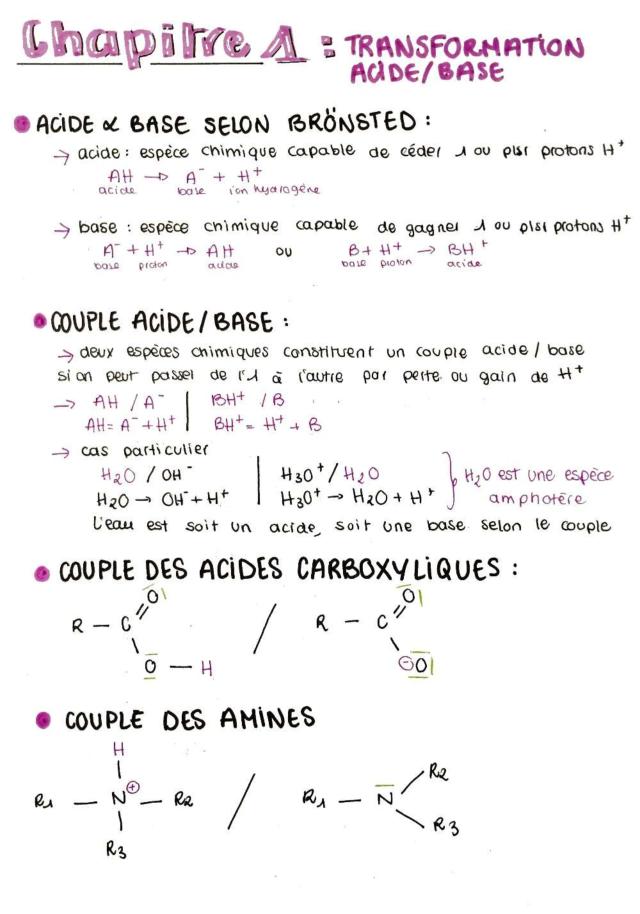 Chapitre 1 : TRANSFORMATION
ACIDE/BASE
ACIDE & BASE SELON BRÖNSTED :
→ acide : espèce chimique capable de céder 1 ou plsr protons H⁺
AH → A⁻ + H⁺
acide base ion hydrogène
→ base : espèce chimique capable de gagner 1 ou plsr protons H⁺
A⁻ + H⁺ → AH ou B + H⁺ → BH⁺
base proton acide base proton acide
COUPLE ACIDE/BASE :
→ deux espèces chimiques constituent un couple acide/base
si on peut passer de l'1 à l'autre par perte ou gain de H⁺
→ AH / A⁻ | BH⁺ / B
AH = A⁻ + H⁺ | BH⁺ = H⁺ + B
→ cas particulier
H₂O / OH⁻ | H₃O⁺ / H₂O } H₂O est une espèce
H₂O → OH⁻ + H⁺ | H₃O⁺ → H₂O + H⁺ amphotère
L'eau est soit un acide, soit une base selon le couple
COUPLE DES ACIDES CARBOXYLIQUES :
O O
R — C / R — C
O — H ⊖O
COUPLE DES AMINES
H
R₂
R₁ — N⊕ — R₂ / R₁ — N
R₃
R₃